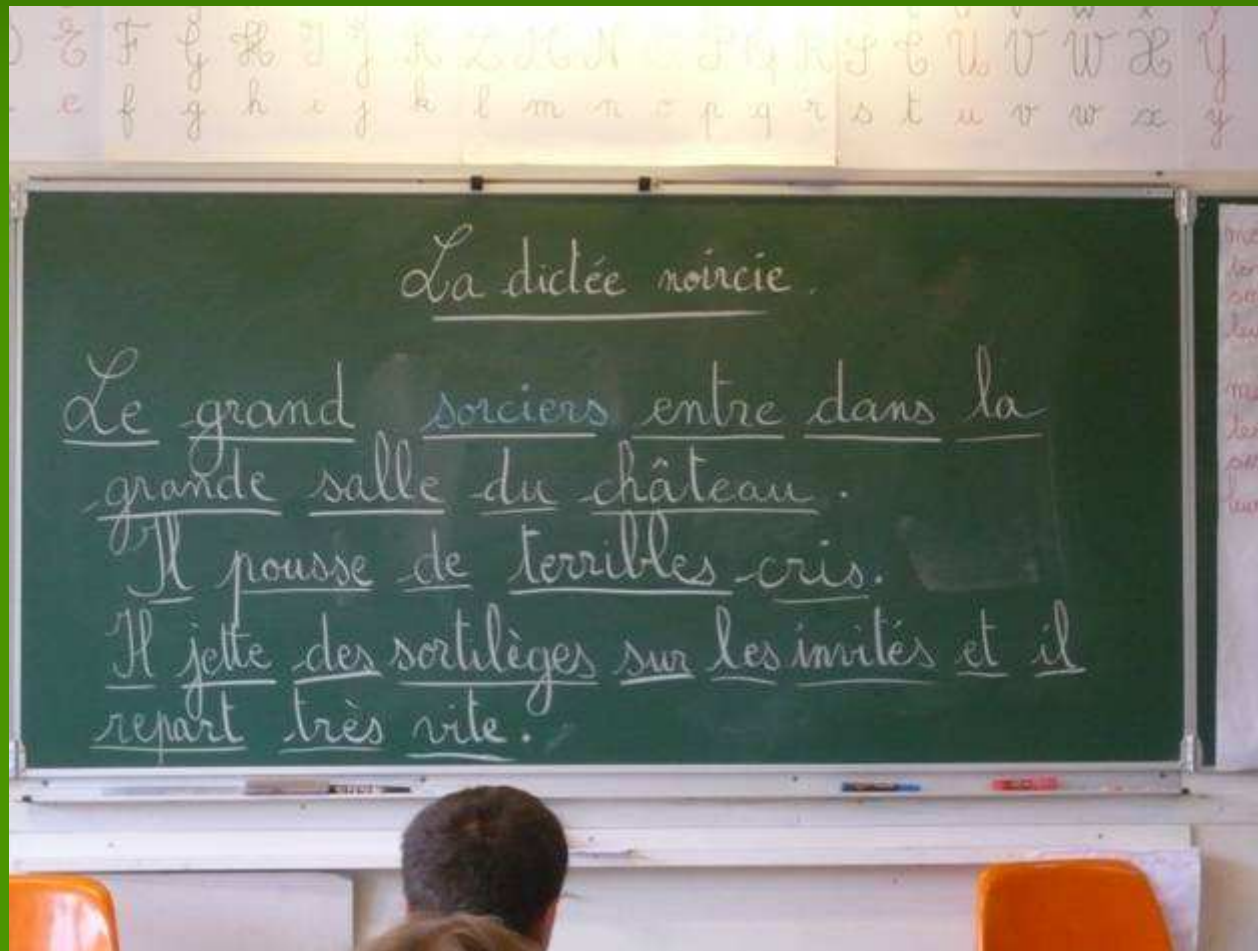 E F G H I J K L M N O P Q R S T U V W X Y
e f g h i j k l m n o p q r s t u v w x y
La dictée noircie.
Le grand sorciers entre dans la
grande salle du château.
Il pousse de terribles cris.
Il jette des sortilèges sur les invités et il
repart très vite.